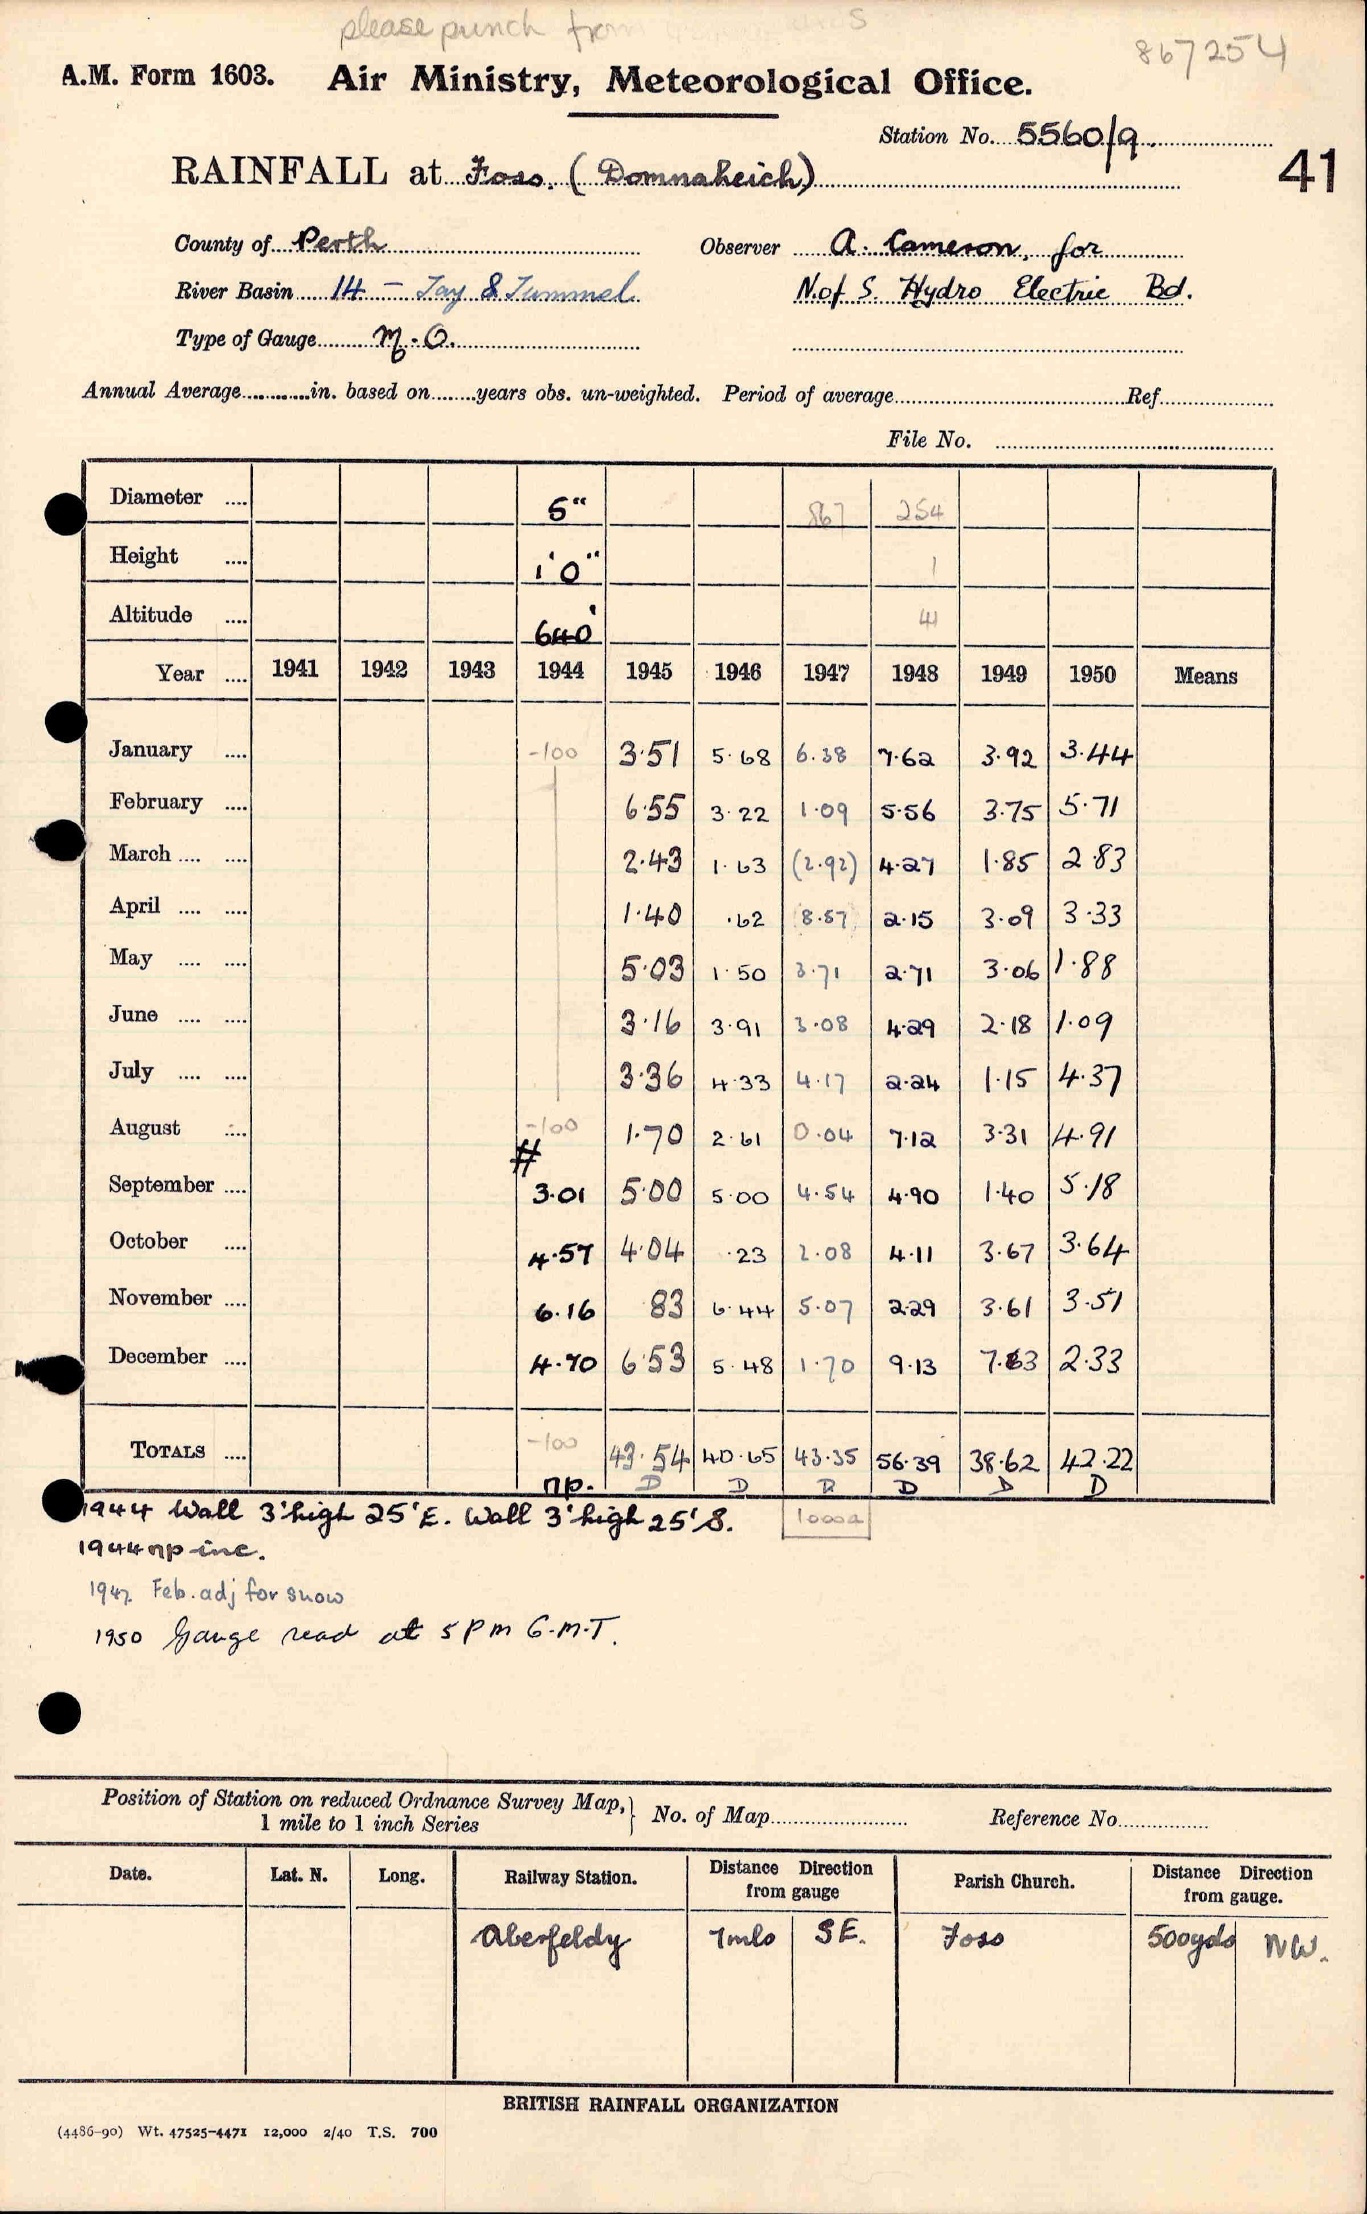 please punch from
867254
A.M. Form 1603. Air Ministry, Meteorological Office.
Station No. 5560/9.
41
RAINFALL at Foss. (Domnaheich)
County of Perth Observer A. Cameron, for
River Basin 14 - Tay & Tummel N.of S. Hydro Electric Bd.
Type of Gauge M.O.
Annual Average in. based on years obs. un-weighted. Period of average Ref.
File No.
Diameter 5" 867 254
Height 1'0" 1
Altitude 640' 41
Year 1941 1942 1943 1944 1945 1946 1947 1948 1949 1950 Means
January -100 3.51 5.68 6.38 7.62 3.92 3.44
February 6.55 3.22 1.09 5.56 3.75 5.71
March 2.43 1.63 (2.92) 4.27 1.85 2.83
April 1.40 .62 8.57 2.15 3.09 3.33
May 5.03 1.50 3.71 2.71 3.06 1.88
June 3.16 3.91 3.08 4.29 2.18 1.09
July 3.36 4.33 4.17 2.24 1.15 4.37
August -100 1.70 2.61 0.04 7.12 3.31 4.91
#
September 3.01 5.00 5.00 4.54 4.90 1.40 5.18
October 4.57 4.04 .23 2.08 4.11 3.67 3.64
November 6.16 83 6.44 5.07 2.29 3.61 3.51
December 4.70 6.53 5.48 1.70 9.13 7.63 2.33
TOTALS -100 43.54 40.65 43.35 56.39 38.62 42.22
np. D D R D D D
1944 Wall 3' high 25' E. Wall 3' high 25' S. 1000a
1944 np inc.
1947. Feb. adj for snow
1950 Gauge read at 5 PM G.M.T.
Position of Station on reduced Ordnance Survey Map, 1 mile to 1 inch Series } No. of Map Reference No.
Date. Lat. N. Long. Railway Station. Distance Direction from gauge Parish Church. Distance Direction from gauge.
Aberfeldy 7mls SE. Foss 500yds NW.
BRITISH RAINFALL ORGANIZATION
(4486-90) Wt. 47525-4471 12,000 2/40 T.S. 700